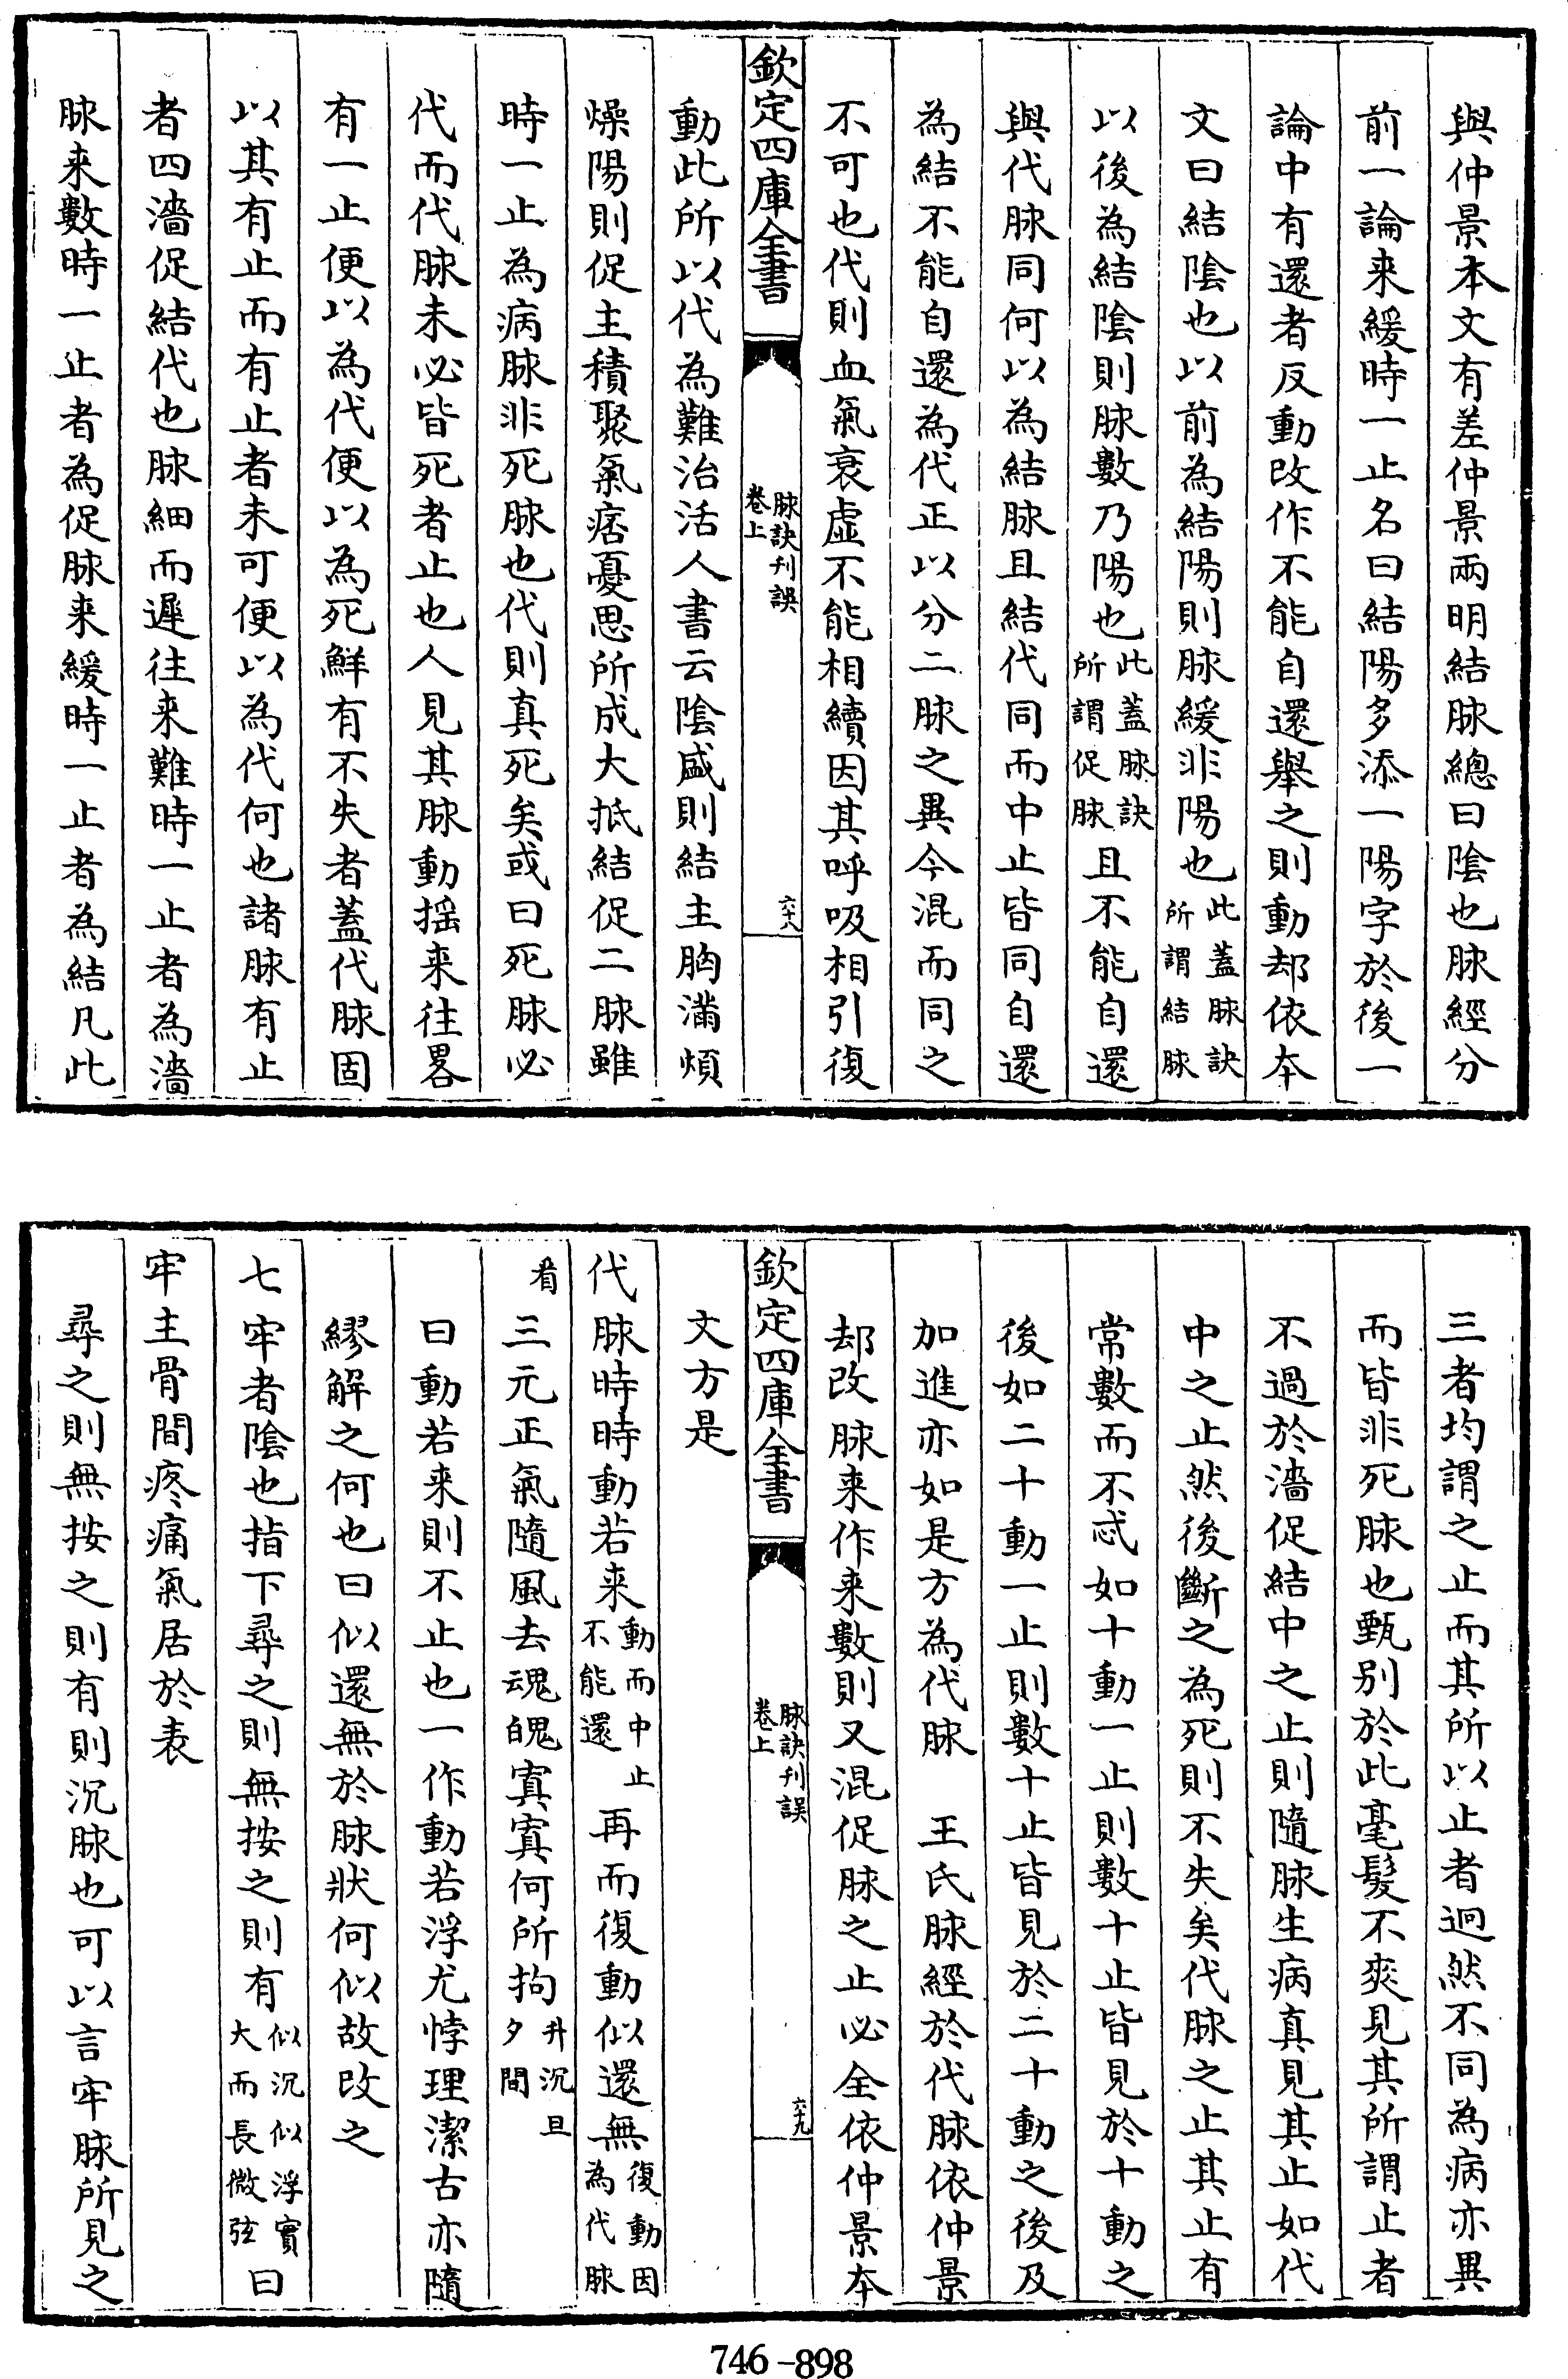 與仲景本文有差仲景兩明結脉總曰隂也脉經分
前一論来緩時一止名曰結陽多添一陽字於後一
論中有還者反動改作不能自還舉之則動却依本
文曰結隂也以前為結陽則脉緩非陽也此蓋脉訣所謂結脉
以後為結隂則脉數乃陽也此蓋脉訣所謂促脉且不能自還
與代脉同何以為結脉且結代同而中止皆同自還
為結不能自還為代正以分二脉之異今混而同之
不可也代則血氣衰虚不能相續因其呼吸相引復
欽定四庫全書
脉訣刋誤
卷上
六十八
動此所以代為難治活人書云隂盛則結主胸滿煩
燥陽則促主積聚氣痞憂思所成大抵結促二脉雖
時一止為病脉非死脉也代則真死矣或曰死脉必
代而代脉未必皆死者止也人見其脉動揺来往畧
有一止便以為代便以為死鮮有不失者蓋代脉固
以其有止而有止者未可便以為代何也諸脉有止
者四濇促結代也脉細而遲往来難時一止者為濇
脉来數時一止者為促脉来緩時一止者為結凡此
三者均謂之止而其所以止者迥然不同為病亦異
而皆非死脉也甄别於此毫髮不爽見其所謂止者
不過於濇促結中之止則隨脉生病真見其止如代
中之止然後斷之為死則不失矣代脉之止其止有
常數而不忒如十動一止則數十止皆見於十動之
後如二十動一止則數十止皆見於二十動之後及
加進亦如是方為代脉　王氏脉經於代脉依仲景
却改脉来作来數則又混促脉之止必全依仲景本
欽定四庫全書
脉訣刋誤
卷上
六十九
文方是
代脉時時動若来動而中止不能還再而復動似還無復動因為代脉
㸔三元正氣隨風去魂魄㝠㝠何所拘升沉旦夕間
曰動若来則不止也一作動若浮尤悖理潔古亦隨
繆解之何也曰似還無於脉狀何似故改之
七牢者隂也指下㝷之則無按之則有似沉似浮實大而長微弦曰
牢主骨間疼痛氣居於表
㝷之則無按之則有則沉脉也可以言牢脉所見之
746-898